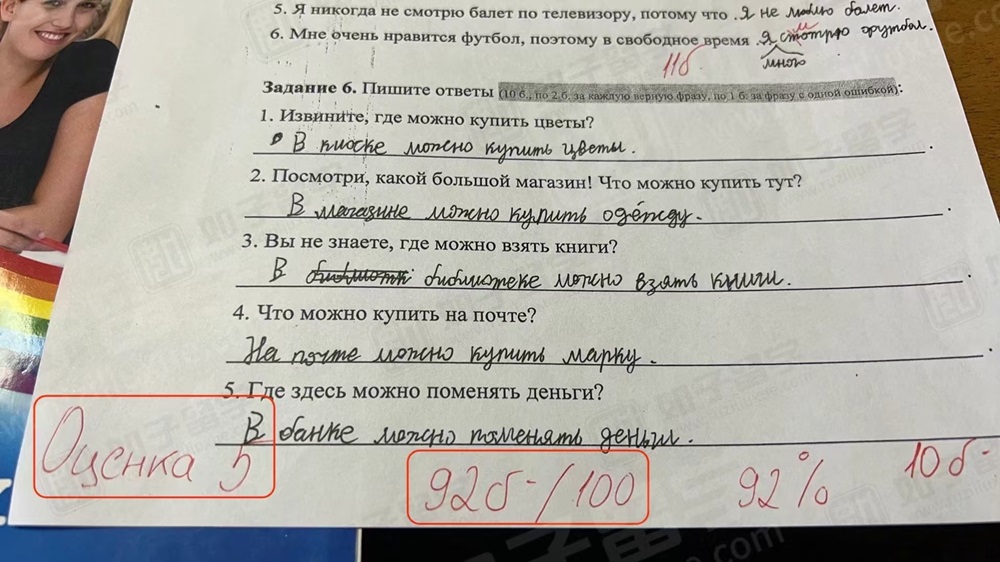 5. Я никогда не смотрю балет по телевизору, потому что Я не люблю балет.
6. Мне очень нравится футбол, поэтому в свободное время Я смотрю футбол.
много
11б.
Задание 6. Пишите ответы (10 б., по 2 б. за каждую верную фразу, по 1 б. за фразу с одной ошибкой):
1. Извините, где можно купить цветы?
В киоске можно купить цветы.
2. Посмотри, какой большой магазин! Что можно купить тут?
В магазине можно купить одежду.
3. Вы не знаете, где можно взять книги?
В библиотеке можно взять книги.
4. Что можно купить на почте?
На почте можно купить марку.
5. Где здесь можно поменять деньги?
В банке можно поменять деньги.
Оценка 5
92б-/100
92%
10б-